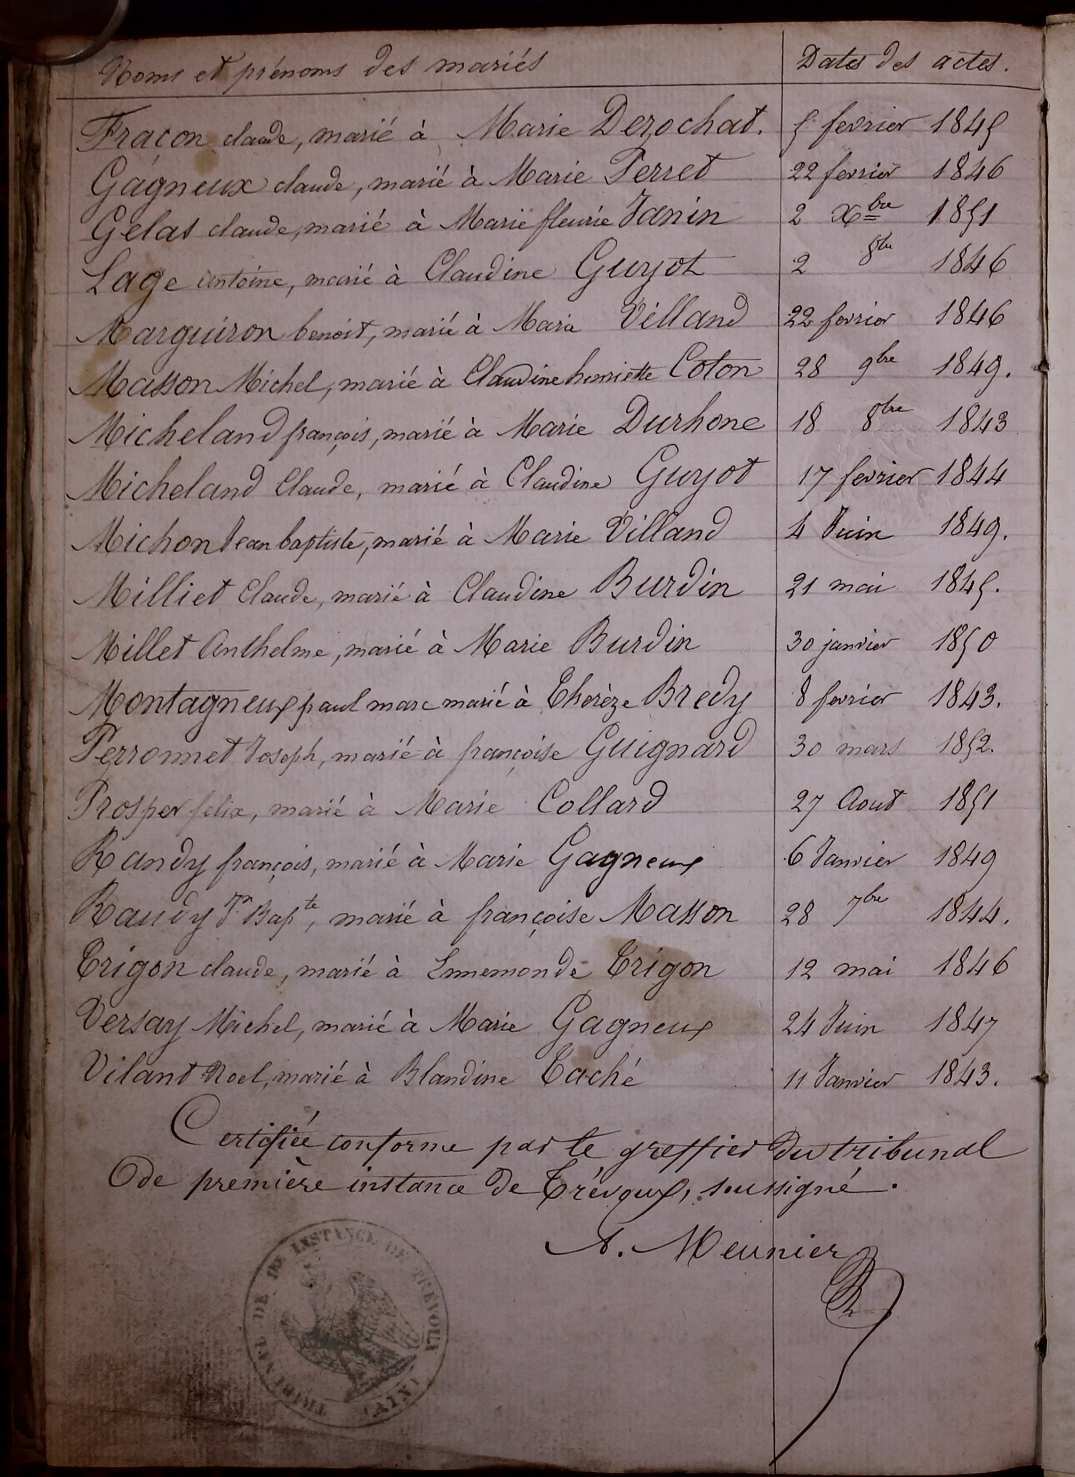 Noms et prénoms des mariés Dates des actes.
Fraçon claude, marié à Marie Dezochat. 5 fevrier 1845
Gagneux claude, marié à Marie Perret 22 fevrier 1846
Gelas claude, marié à Marie fleurie Janin 2 Xbre 1851
Lage antoine, marié à Claudine Guyot 2 8bre 1846
Marguiron benoit, marié à Marie Villand 22 fevrier 1846
Masson Michel, marié à Claudine henriette Coton 28 9bre 1849.
Micheland françois, marié à Marie Durhone 18 8bre 1843
Micheland Claude, marié à Claudine Guyot 17 fevrier 1844
Michon Jean baptiste, marié à Marie Villand 4 Juin 1849.
Milliet Claude, marié à Claudine Burdin 21 mai 1845.
Millet Anthelme, marié à Marie Burdin 30 janvier 1850
Montagneux paul marc marié à Thereze Bredy 8 fevrier 1843.
Perronnet Joseph, marié à françoise Guignard 30 mars 1852.
Prosper felix, marié à Marie Collard 27 Aout 1851
Randy françois, marié à Marie Gagneux 6 Janvier 1849
Randy Jn Bapte, marié à françoise Masson 28 7bre 1844.
Trigon claude, marié à Ennemonde Trigon 12 mai 1846
Versay Michel, marié à Marie Gagneux 24 Juin 1847
Vilant Noel, marié à Blandine Taché 11 Janvier 1843.
Certifiée conforme par le greffier du tribunal
de première instance de Trévoux, soussigné.
A. Meunier
TRIBUNAL DE 1re INSTANCE DE TRÉVOUX (AIN)